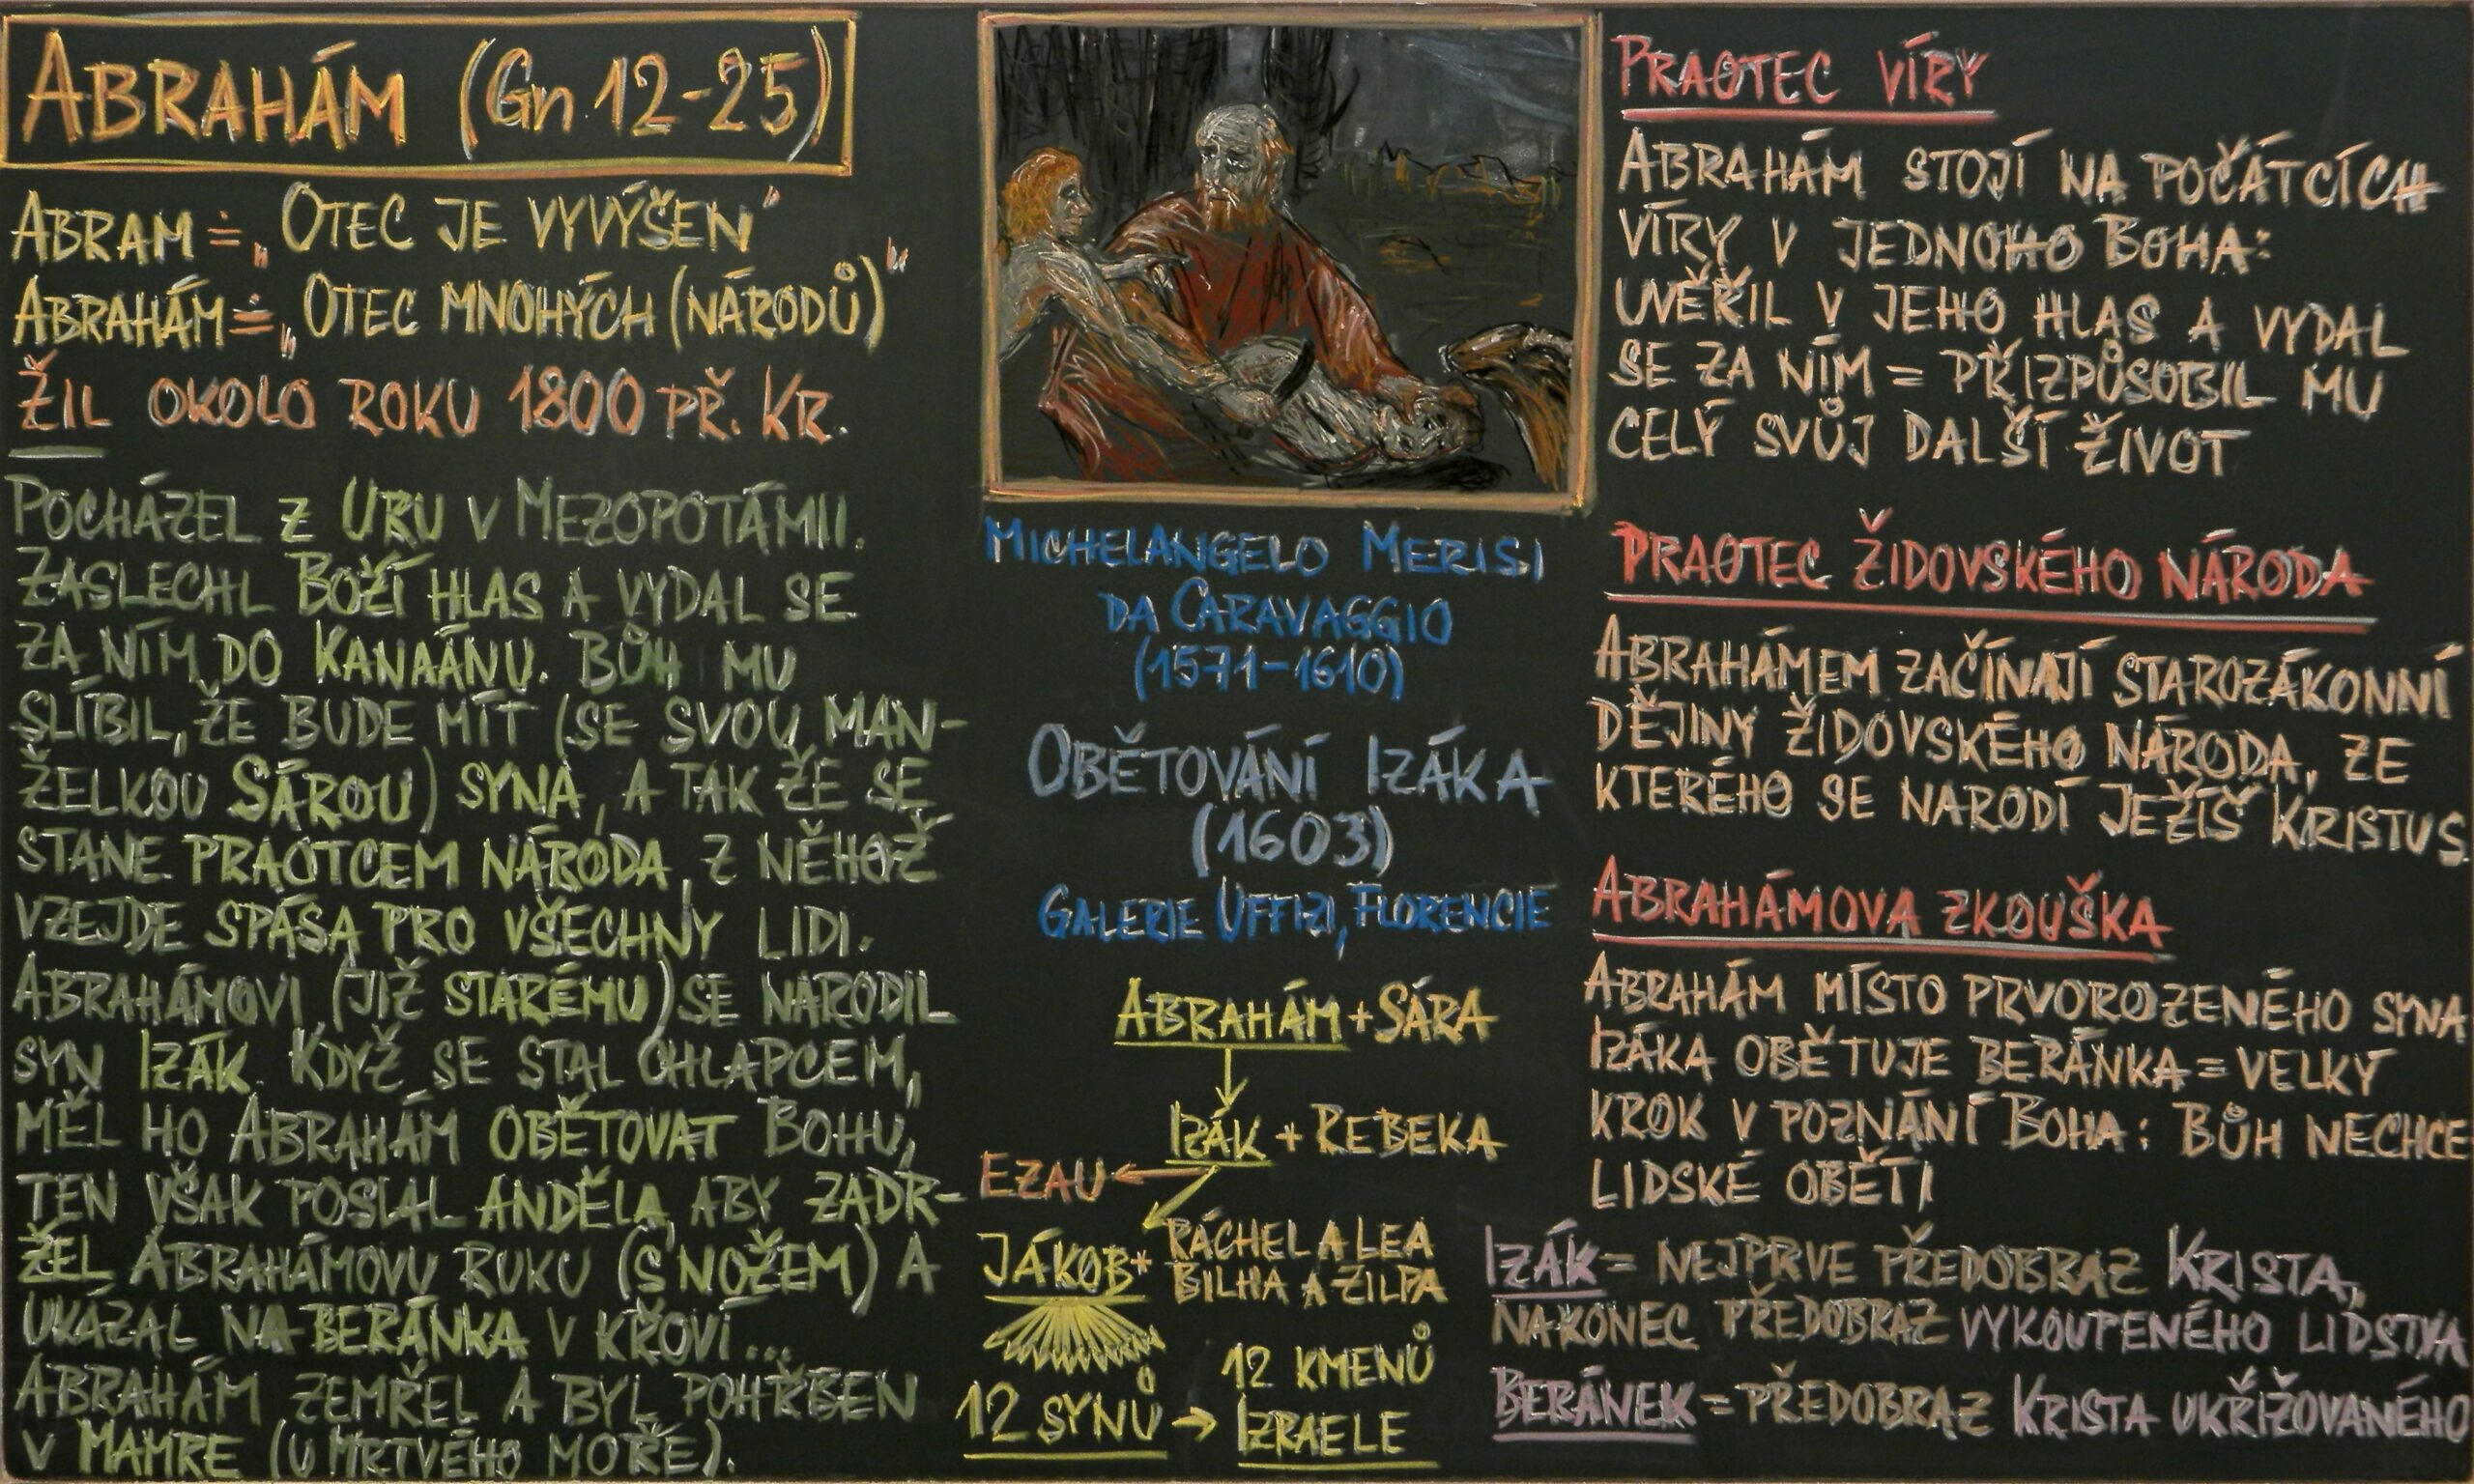 ABRAHÁM (Gn 12-25)
ABRAM ≐ „OTEC JE VYVÝŠEN"
ABRAHÁM ≐ „OTEC MNOHÝCH (NÁRODŮ)"
ŽIL OKOLO ROKU 1800 PŘ. KR.
POCHÁZEL Z URU V MEZOPOTÁMII.
ZASLECHL BOŽÍ HLAS A VYDAL SE
ZA NÍM DO KANAÁNU. BŮH MU
SLÍBIL, ŽE BUDE MÍT (SE SVOU MAN-
ŽELKOU SÁROU) SYNA, A TAK ŽE SE
STANE PRAOTCEM NÁRODA, Z NĚHOŽ
VZEJDE SPÁSA PRO VŠECHNY LIDI.
ABRAHÁMOVI (JIŽ STARÉMU) SE NARODIL
SYN IZÁK. KDYŽ SE STAL CHLAPCEM,
MĚL HO ABRAHÁM OBĚTOVAT BOHU,
TEN VŠAK POSLAL ANDĚLA, ABY ZADR-
ŽEL ABRAHÁMOVU RUKU (S NOŽEM) A
UKÁZAL NA BERÁNKA V KŘOVÍ...
ABRAHÁM ZEMŘEL A BYL POHŘBEN
V MAMRE (U MRTVÉHO MOŘE).
MICHELANGELO MERISI
DA CARAVAGGIO
(1571-1610)
OBĚTOVÁNÍ IZÁKA
(1603)
GALERIE UFFIZI, FLORENCIE
ABRAHÁM + SÁRA
IZÁK + REBEKA
EZAU
JÁKOB + RÁCHEL A LEA
BILHA A ZILPA
12 SYNŮ → 12 KMENŮ
IZRAELE
PRAOTEC VÍRY
ABRAHÁM STOJÍ NA POČÁTCÍCH
VÍRY V JEDNOHO BOHA:
UVĚŘIL V JEHO HLAS A VYDAL
SE ZA NÍM = PŘIZPŮSOBIL MU
CELÝ SVŮJ DALŠÍ ŽIVOT
PRAOTEC ŽIDOVSKÉHO NÁRODA
ABRAHÁMEM ZAČÍNAJÍ STAROZÁKONNÍ
DĚJINY ŽIDOVSKÉHO NÁRODA, ZE
KTERÉHO SE NARODÍ JEŽÍŠ KRISTUS.
ABRAHÁMOVA ZKOUŠKA
ABRAHÁM MÍSTO PRVOROZENÉHO SYNA
IZÁKA OBĚTUJE BERÁNKA = VELKÝ
KROK V POZNÁNÍ BOHA: BŮH NECHCE
LIDSKÉ OBĚTI
IZÁK = NEJPRVE PŘEDOBRAZ KRISTA,
NAKONEC PŘEDOBRAZ VYKOUPENÉHO LIDSTVA
BERÁNEK = PŘEDOBRAZ KRISTA UKŘIŽOVANÉHO